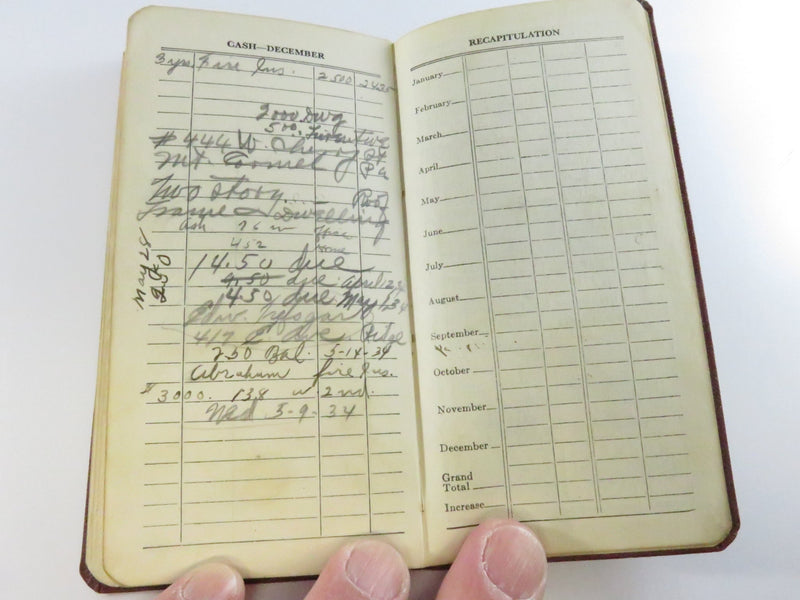 CASH—DECEMBER
3 yrs Fire Ins. 2500 2425
2000 Dwg
500.
# 444 W Cherry St
Mt. Carmel Pa
Two Story Roof
Frame Dwelling
Ash 76 w
452 Home
14.50 due
4.50 due April 24
14.50 due May 1, 34
May 28
417 E Ave.
2.50 Bal. 5-14-34
Abraham fire Ins.
3000. 138 w 2nd.
Wed 5-9-34
RECAPITULATION
January
February
March
April
May
June
July
August
September
October
November
December
Grand
Total
Increase